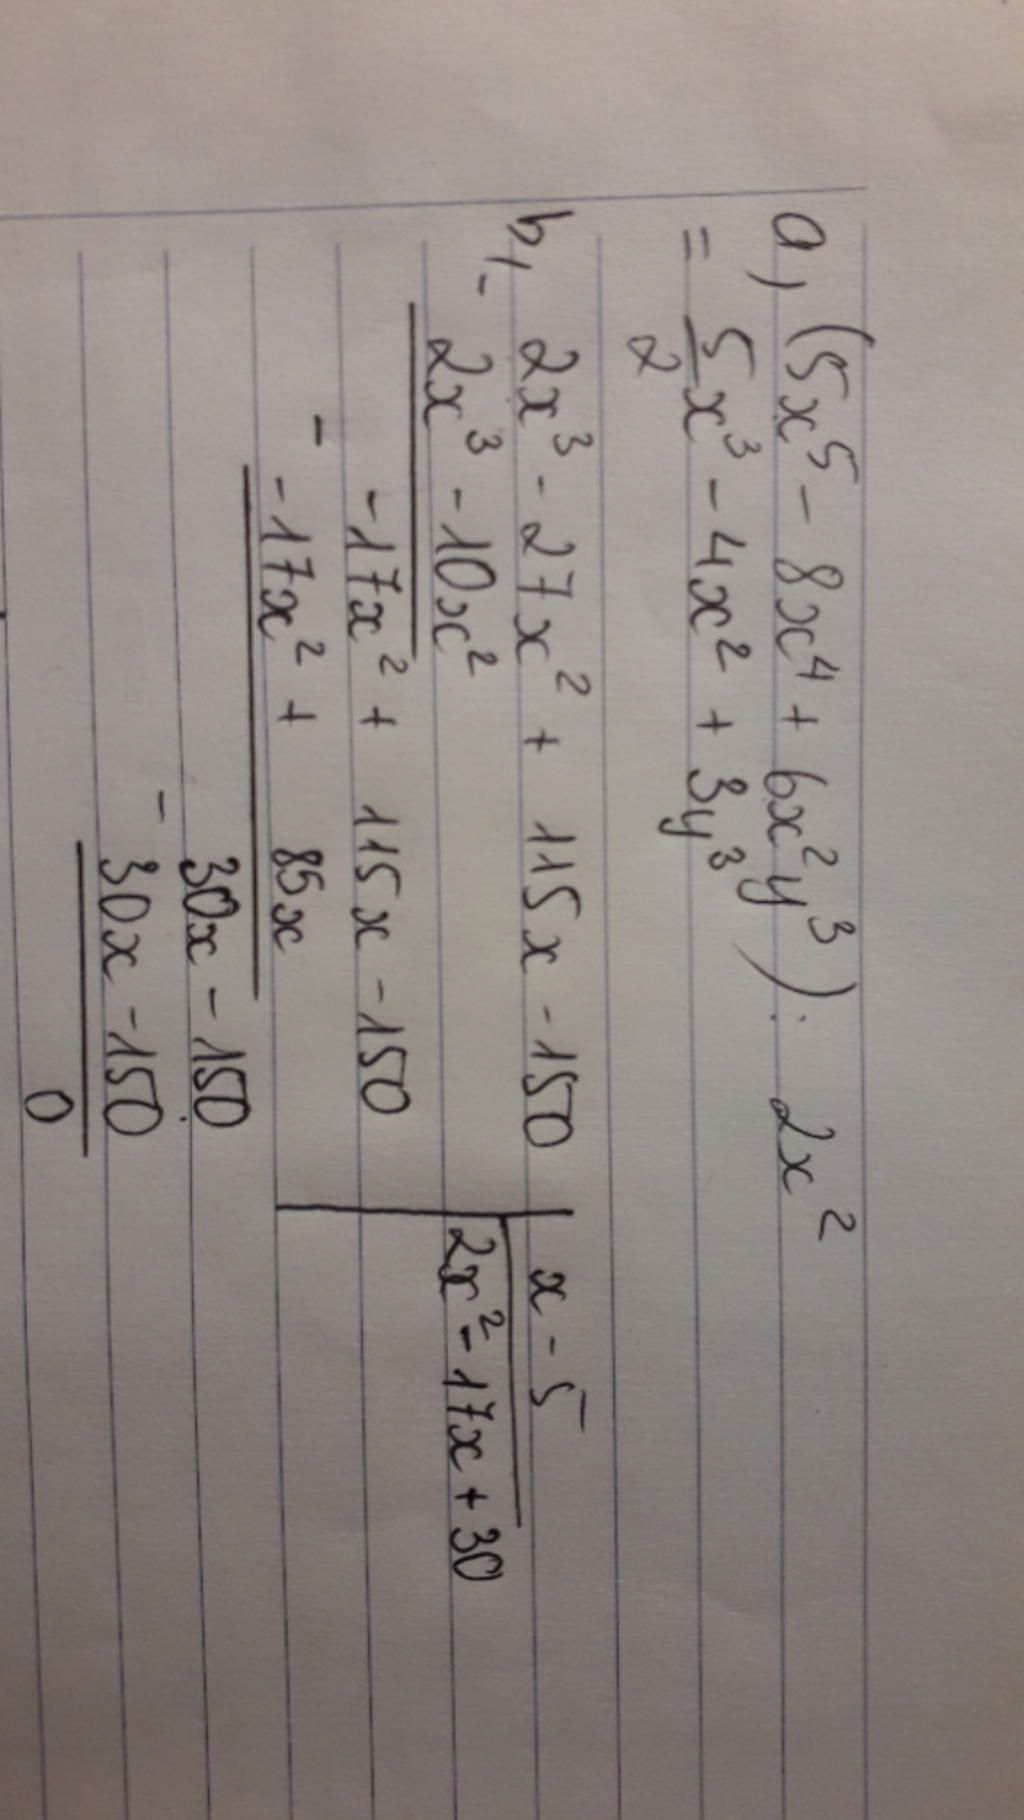 a, (5x⁵ - 8x⁴ + 6x²y³) : 2x²
= 5/2 x³ - 4x² + 3y³
b, 2x³ - 27x² + 115x - 150 | x - 5
- 2x³ - 10x² | 2x² - 17x + 30
-17x² + 115x - 150
- -17x² + 85x
30x - 150
- 30x - 150
0